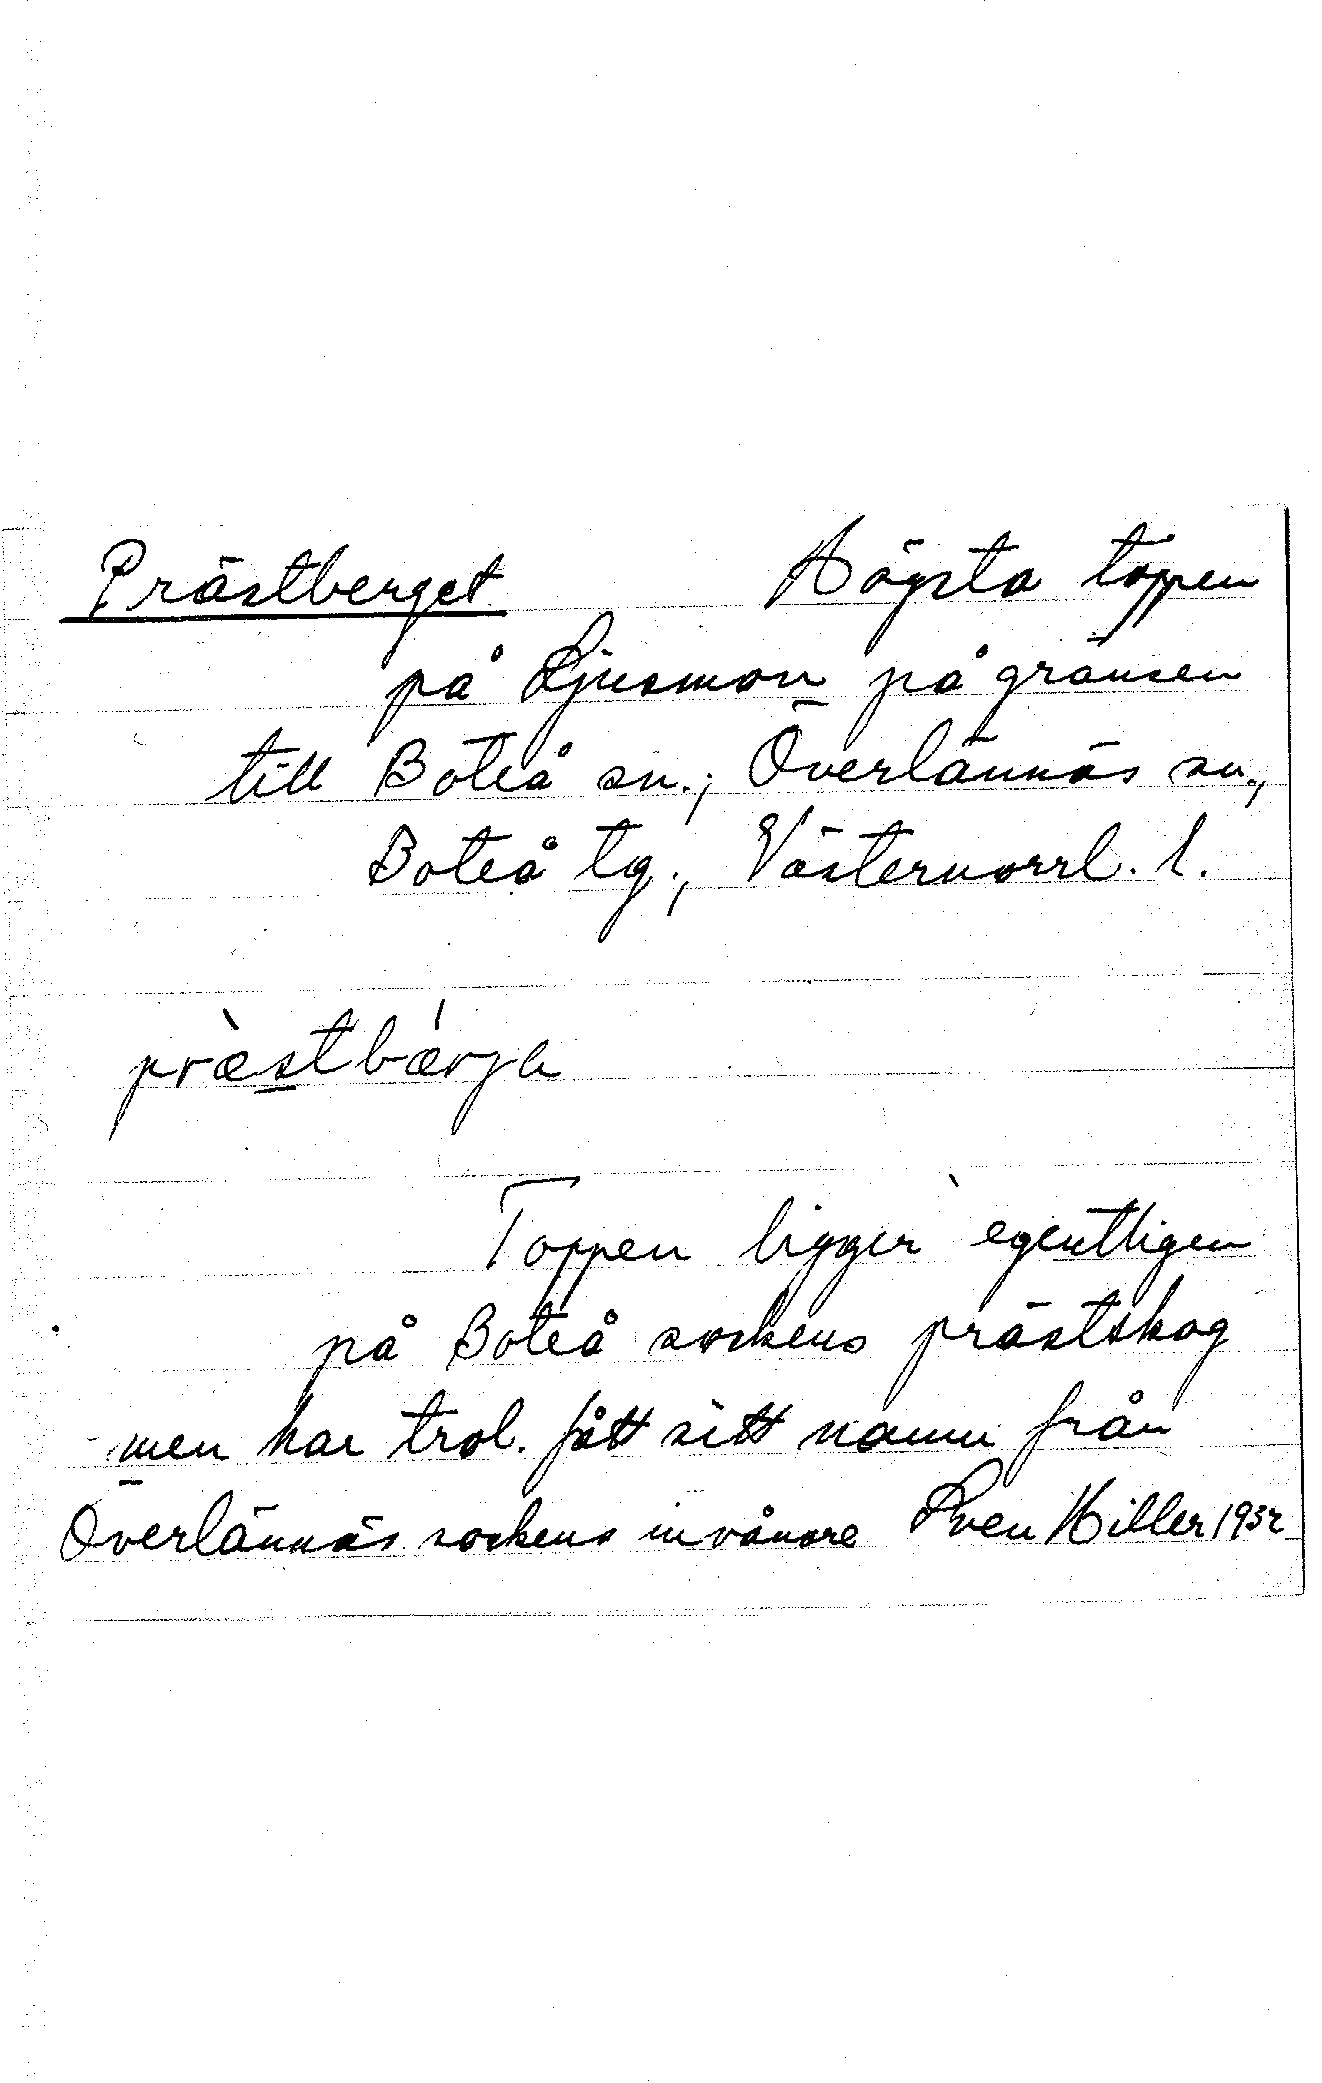 Prästberget Högsta toppen
på Ljusmon på gränsen
till Boteå sn.; Överlännäs sn.,
Boteå tg., Västernorrl. l.
præ̀stbǽrja
Toppen ligger egentligen
på Boteå sockens prästskog
men har trol. fått sitt namn från
Överlännäs sockens invånare Sven Hiller 1932